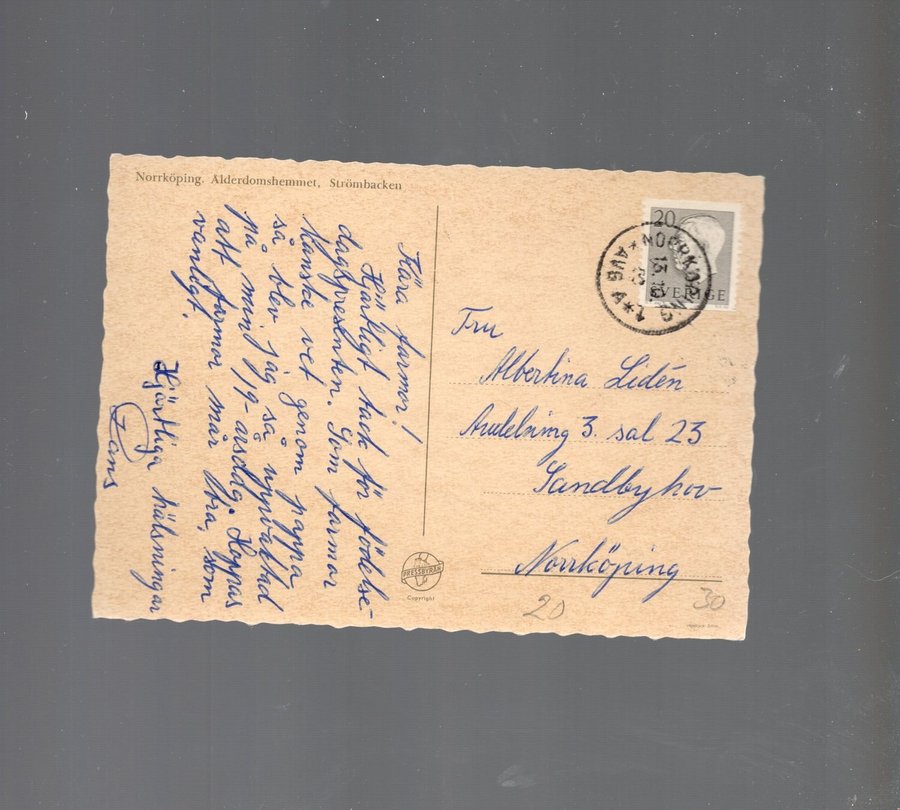 Norrköping. Ålderdomshemmet, Strömbacken
Kära farmor!
Hjärtligt tack för födelse-
dagspresenten. Som farmor
kanske vet genom pappa
så blev jag så uppvaktad
på min 19-årsdag. Hoppas
att farmor mår bra, som
vanligt.
Hjärtliga hälsningar
20
SVERIGE
NORRKÖPING 1
AVG
Fru
Albertina Lidén
Avdelning 3. sal 23
Sandbyhov
Norrköping
PRESSBYRÅN
Copyright
20
30